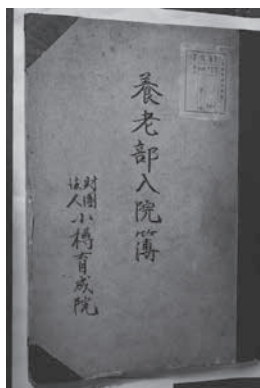 養老部入院簿
財團法人小樽育成院